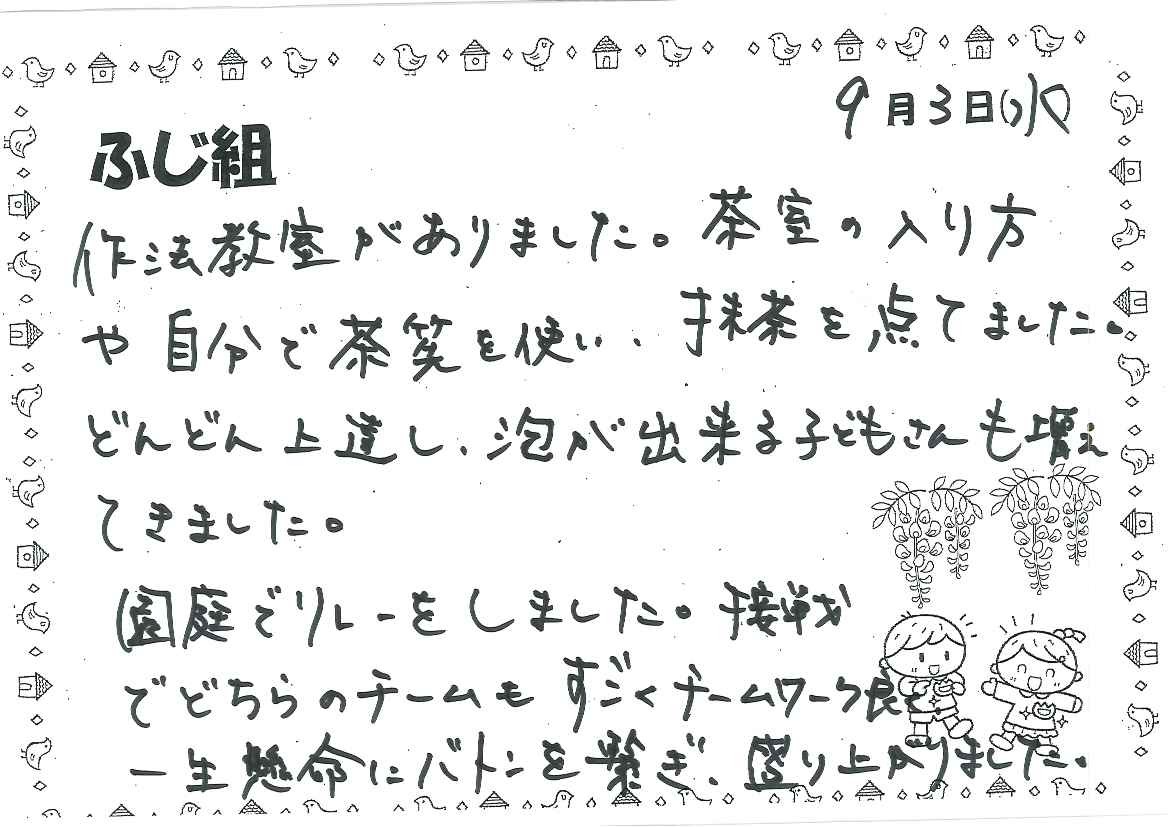 9月3日(水)
ふじ組
作法教室がありました。茶室の入り方
や自分で茶筅を使い、抹茶を点てました。
どんどん上達し、泡が出来る子どもさんも増え
てきました。
園庭でリレーをしました。接戦
でどちらのチームもすごくチームワーク良く
一生懸命にバトンを繋ぎ、盛り上がりました。